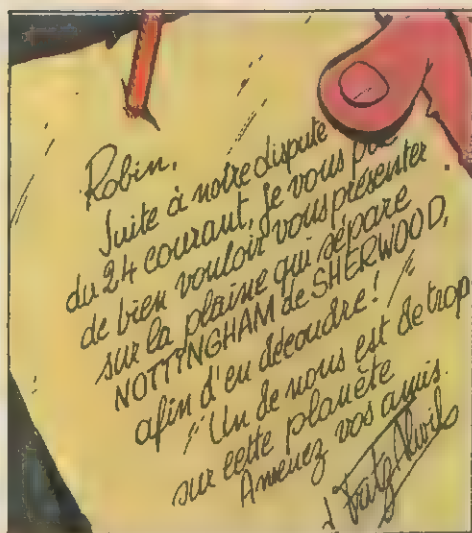 Robin,
Suite à notre dispute
du 24 courant, je vous
de bien vouloir vous présenter
sur la plaine qui sépare
NOTTINGHAM de SHERWOOD,
afin d'en découdre!
"Un de nous est de trop
sur cette planète
Amenez vos amis.